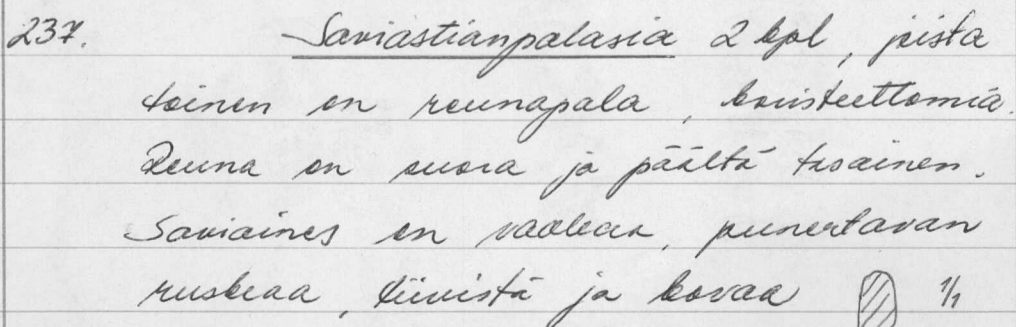 237. Saviastianpalasia 2 kpl, joista
toinen on reunapala, koristeettomia.
Reuna on suora ja päältä tasainen.
Saviaines on vaaleaa, punertavan
ruskeaa, tiivistä ja kovaa 1/1